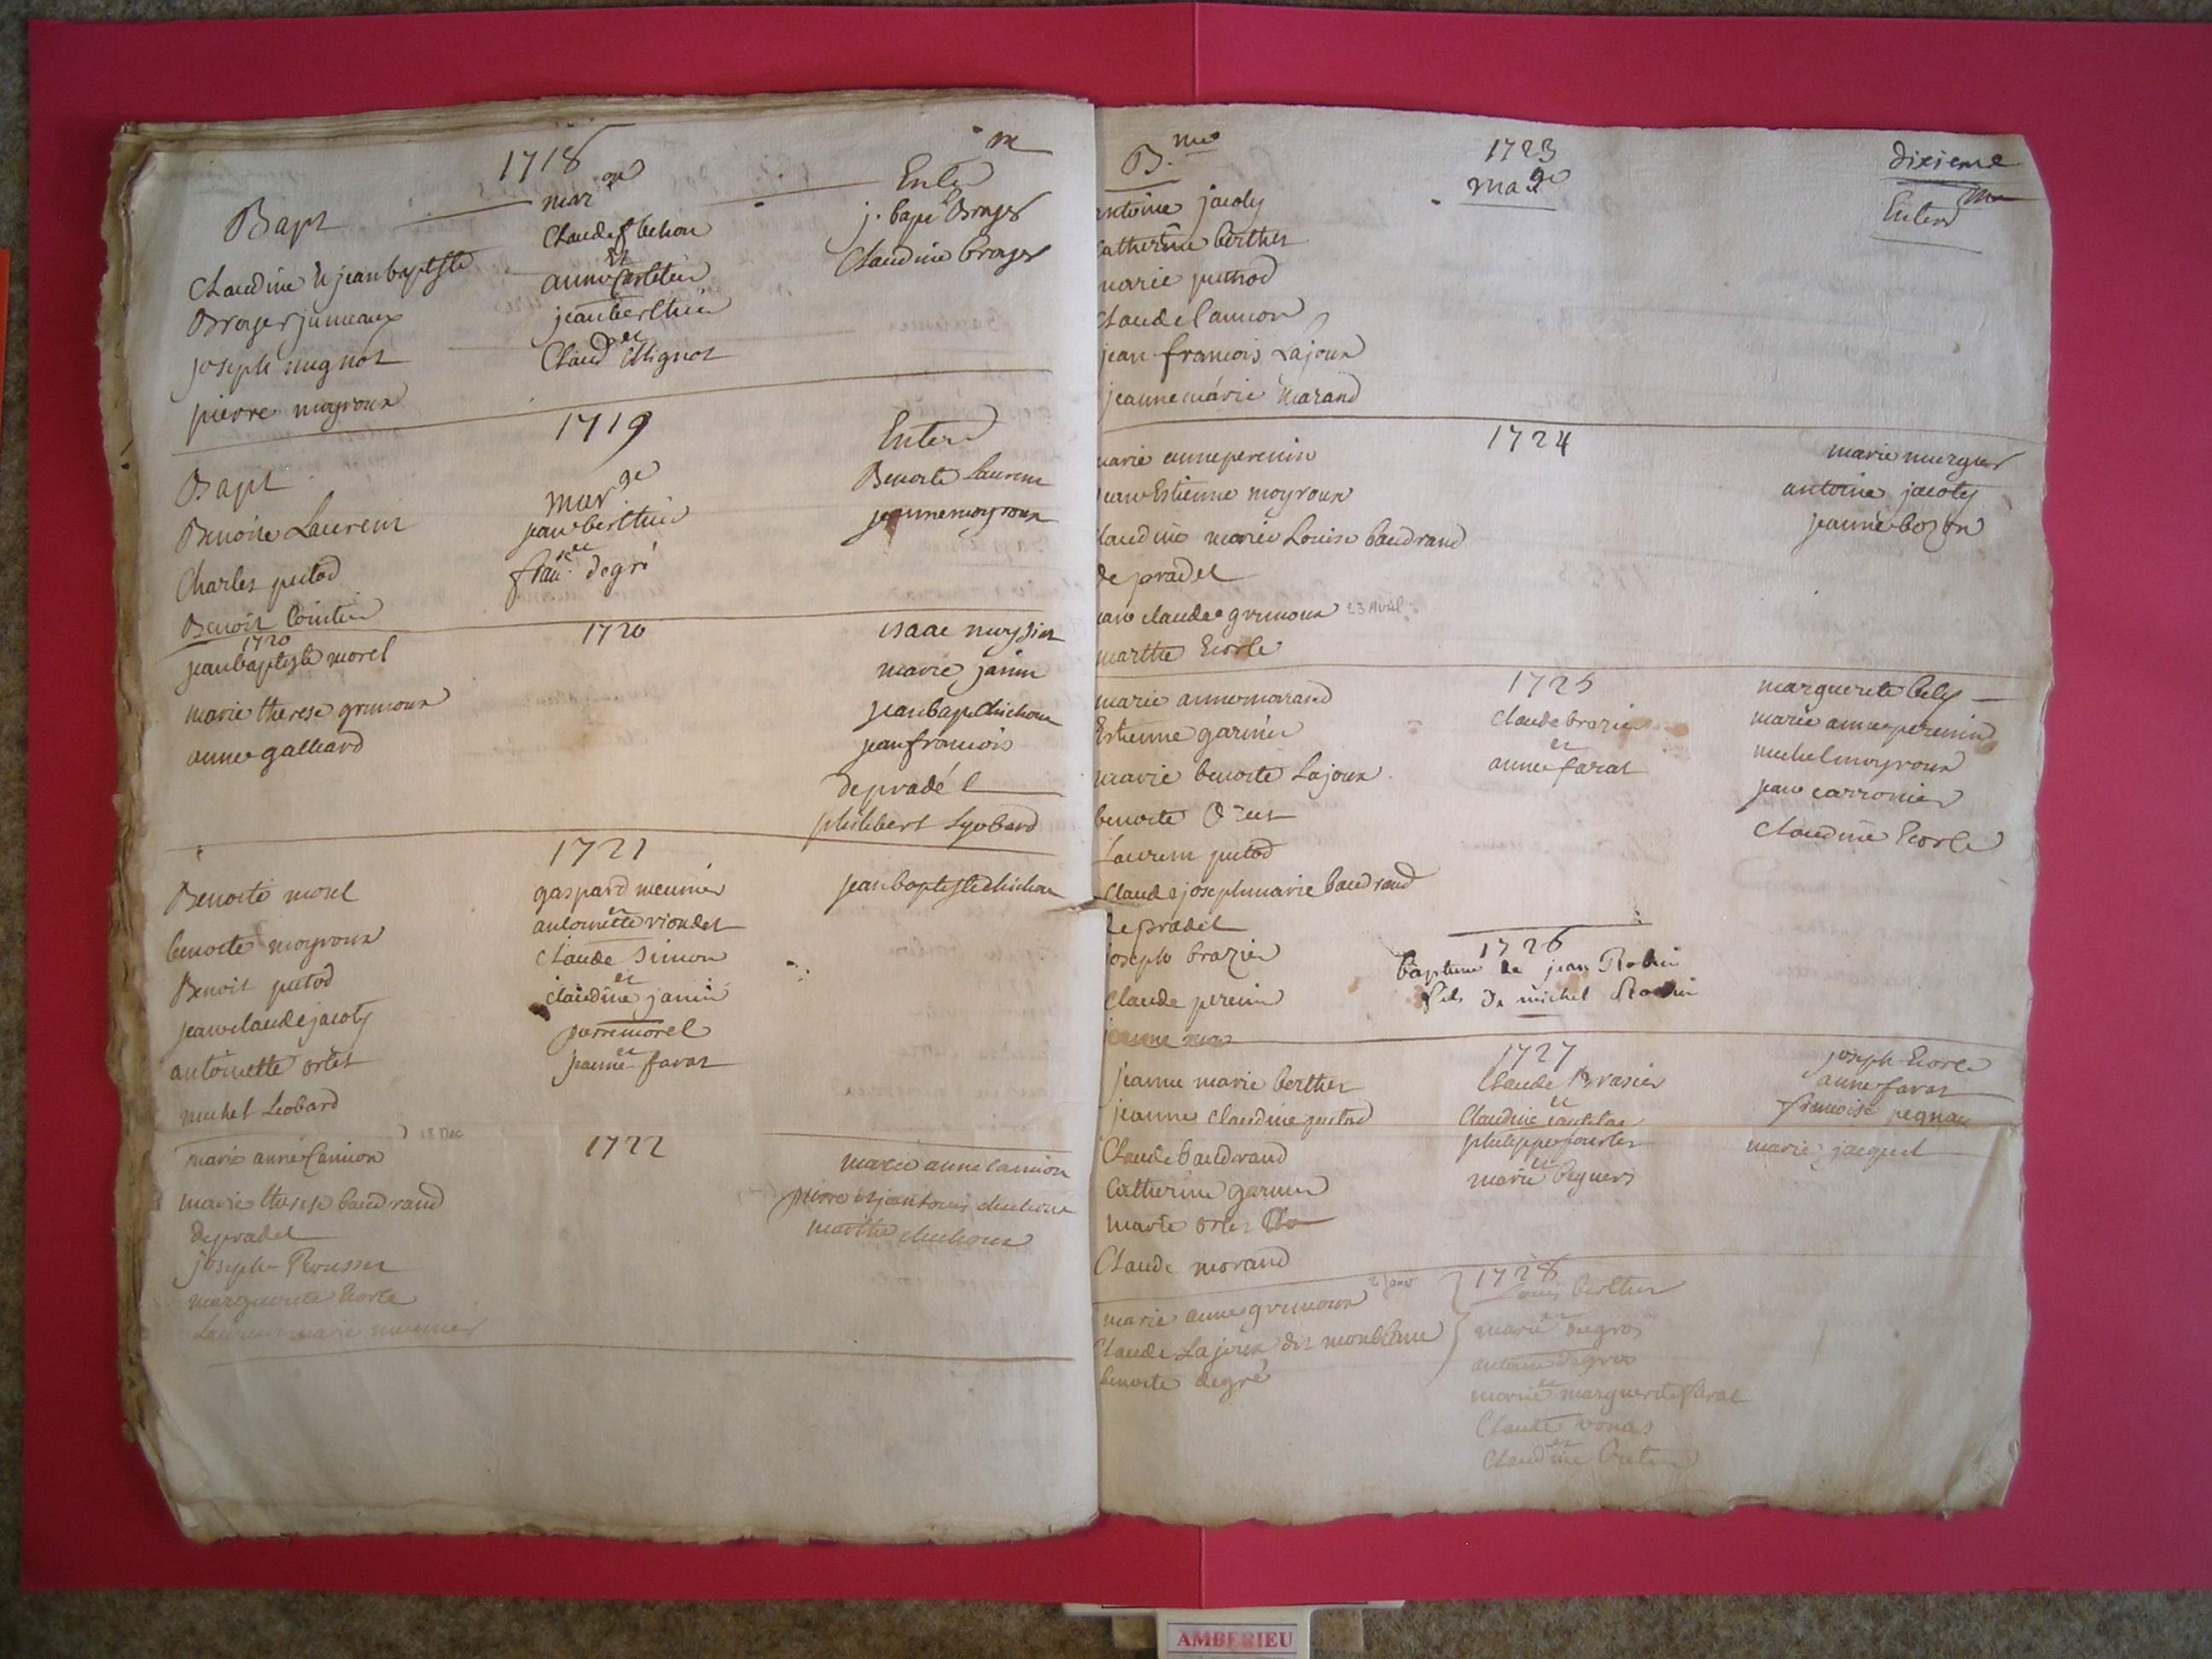 1718
Bapt
mar ge
Enter m
Claudine et jean baptiste
Broyer jumeaux
joseph mignot
pierre moyroux
Claude
et
anne
jean berthier
et
Claud Mignot
j. bapt Broyer
Claudine broyer
1719
Bapt
mar ge
Enter
Benoite Laurent
Charles putod
Benoit Cointier
jean berthier
et
fran degré
Benoite Laurent
jeanne moyroux
1720
1720
jean baptiste morel
marie therese grumoux
anne galliard
isaac
marie janin
jean bapt chichoux
jean francois
depradél
philibert Lyobard
1721
Benoite morel
benoite moyroux
Benoit putod
jean claude jacoty
antoinette ortet
michel Leobard
gaspard meunier
et
antoinette vioudet
claude simon
et
claudine janin
pierre morel
et
jeanne favat
jean baptiste chichoux
18 Dec
1722
marie anne Camion
marie therese baudrand
depradel
joseph Rousset
marguerite Ecorle
Laurent marie meunier
marie anne camion
pierre et jean Louis chichoux
marthe chichoux
dixieme
B. me
1723
mar ge
Enter m
antoine jacoty
catherine berthet
marie putod
Claude Camion
jean francois Lajoux
jeanne marie marand
1724
marie anne perenin
jean Estienne moyroux
claudine marie Louise baudrand
de pradel
jean claude grumoux 23 Avril
marthe Ecorle
marie
antoine jacoty
jeanne bozon
1725
marie anne marand
Estienne garnier
marie benoite Lajoux
benoite
Laurent putod
Claude joseph marie baudrand
depradel
joseph brazier
Claude perenin
jeanne
claude brazier
et
anne farat
marguerite bely
marie anne perenin
michel moyroux
jean carronier
Claudine Ecorle
1726
bapteme de jean Robin
fils de michel Robin
1727
jeanne marie berthet
jeanne claudine putod
Claude baudrand
Catherine garnier
marie ortet
Claude morand
Claude Brasier
et
Claudine
philippe fourler
et
marie beguers
joseph Ecorle
anne favat
francoise
marie jacquet
1728
marie anne grumoux 2 Janv
Claude Lajoux dit monblanc
benoite degré
Louis berthet
et
marie degros
antoine degros
et
marie marguerite farat
Claude vonas
et
Claudine
AMBERIEU